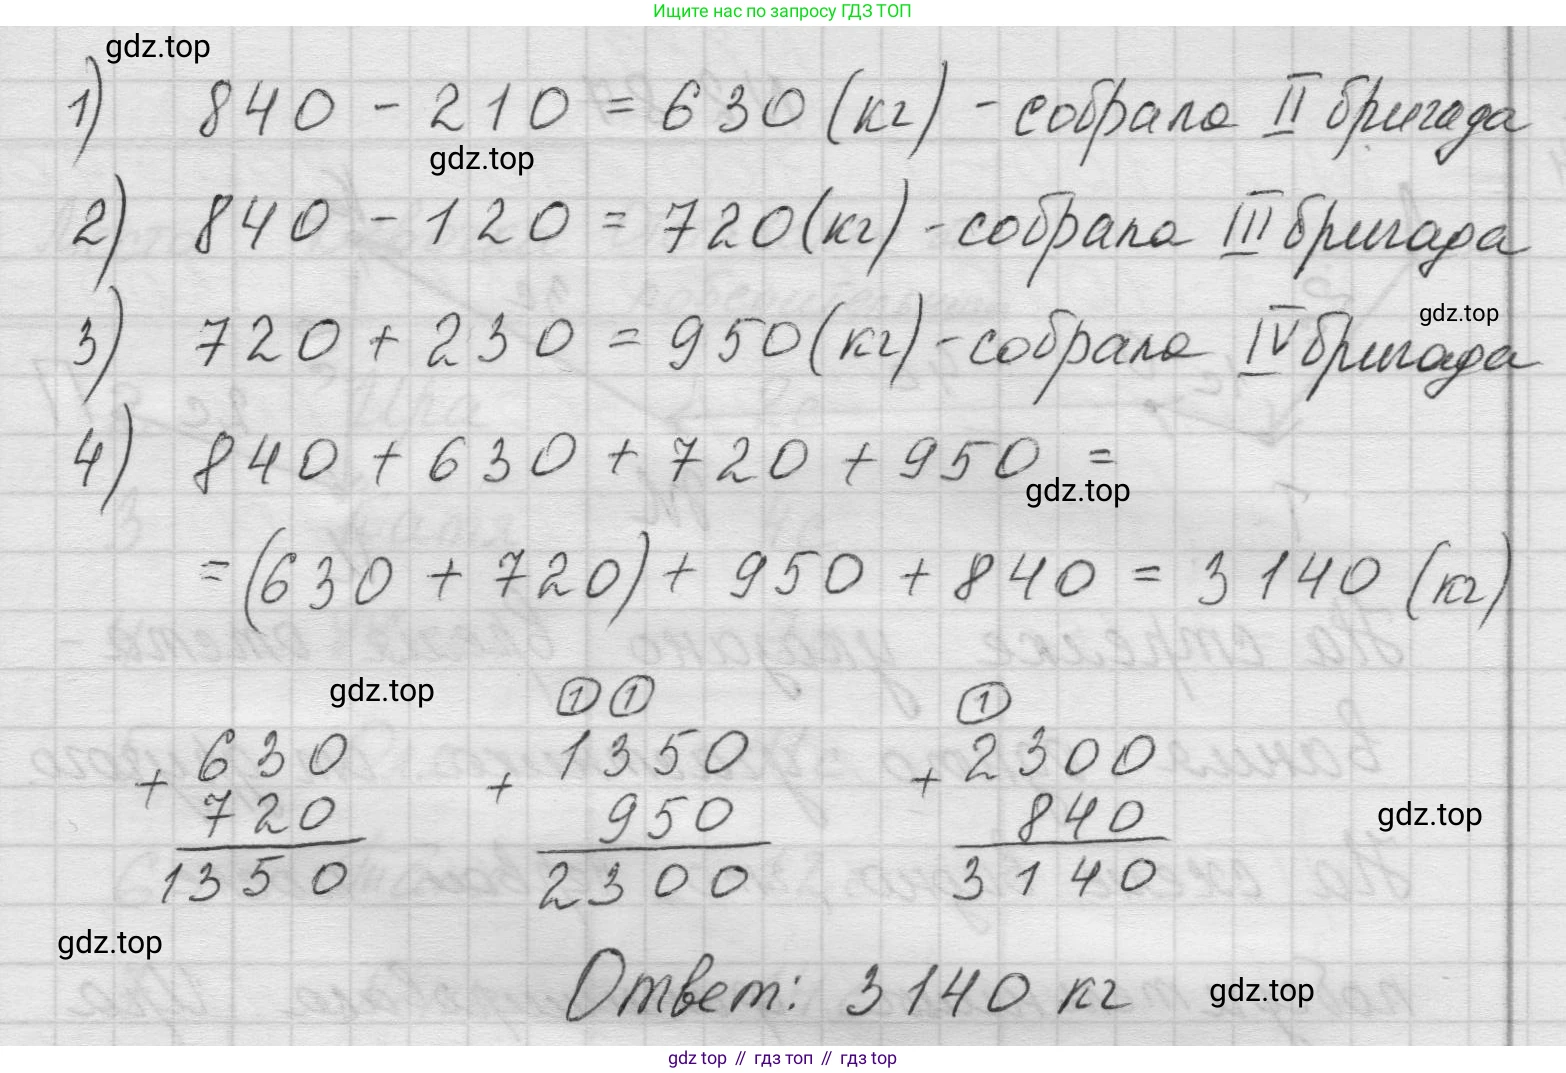 Ищите нас по запросу ГДЗ ТОП
gdz.top
1) 840 - 210 = 630 (кг) - собрала II бригада
gdz.top
2) 840 - 120 = 720 (кг) - собрала III бригада
gdz.top
3) 720 + 230 = 950 (кг) - собрала IV бригада
4) 840 + 630 + 720 + 950 =
gdz.top
= (630 + 720) + 950 + 840 = 3140 (кг)
gdz.top
1 1 1
+ 630 + 1350 + 2300
720 950 840
gdz.top
1350 2300 3140
gdz.top
Ответ: 3140 кг
gdz.top
gdz top // гдз топ // гдз top